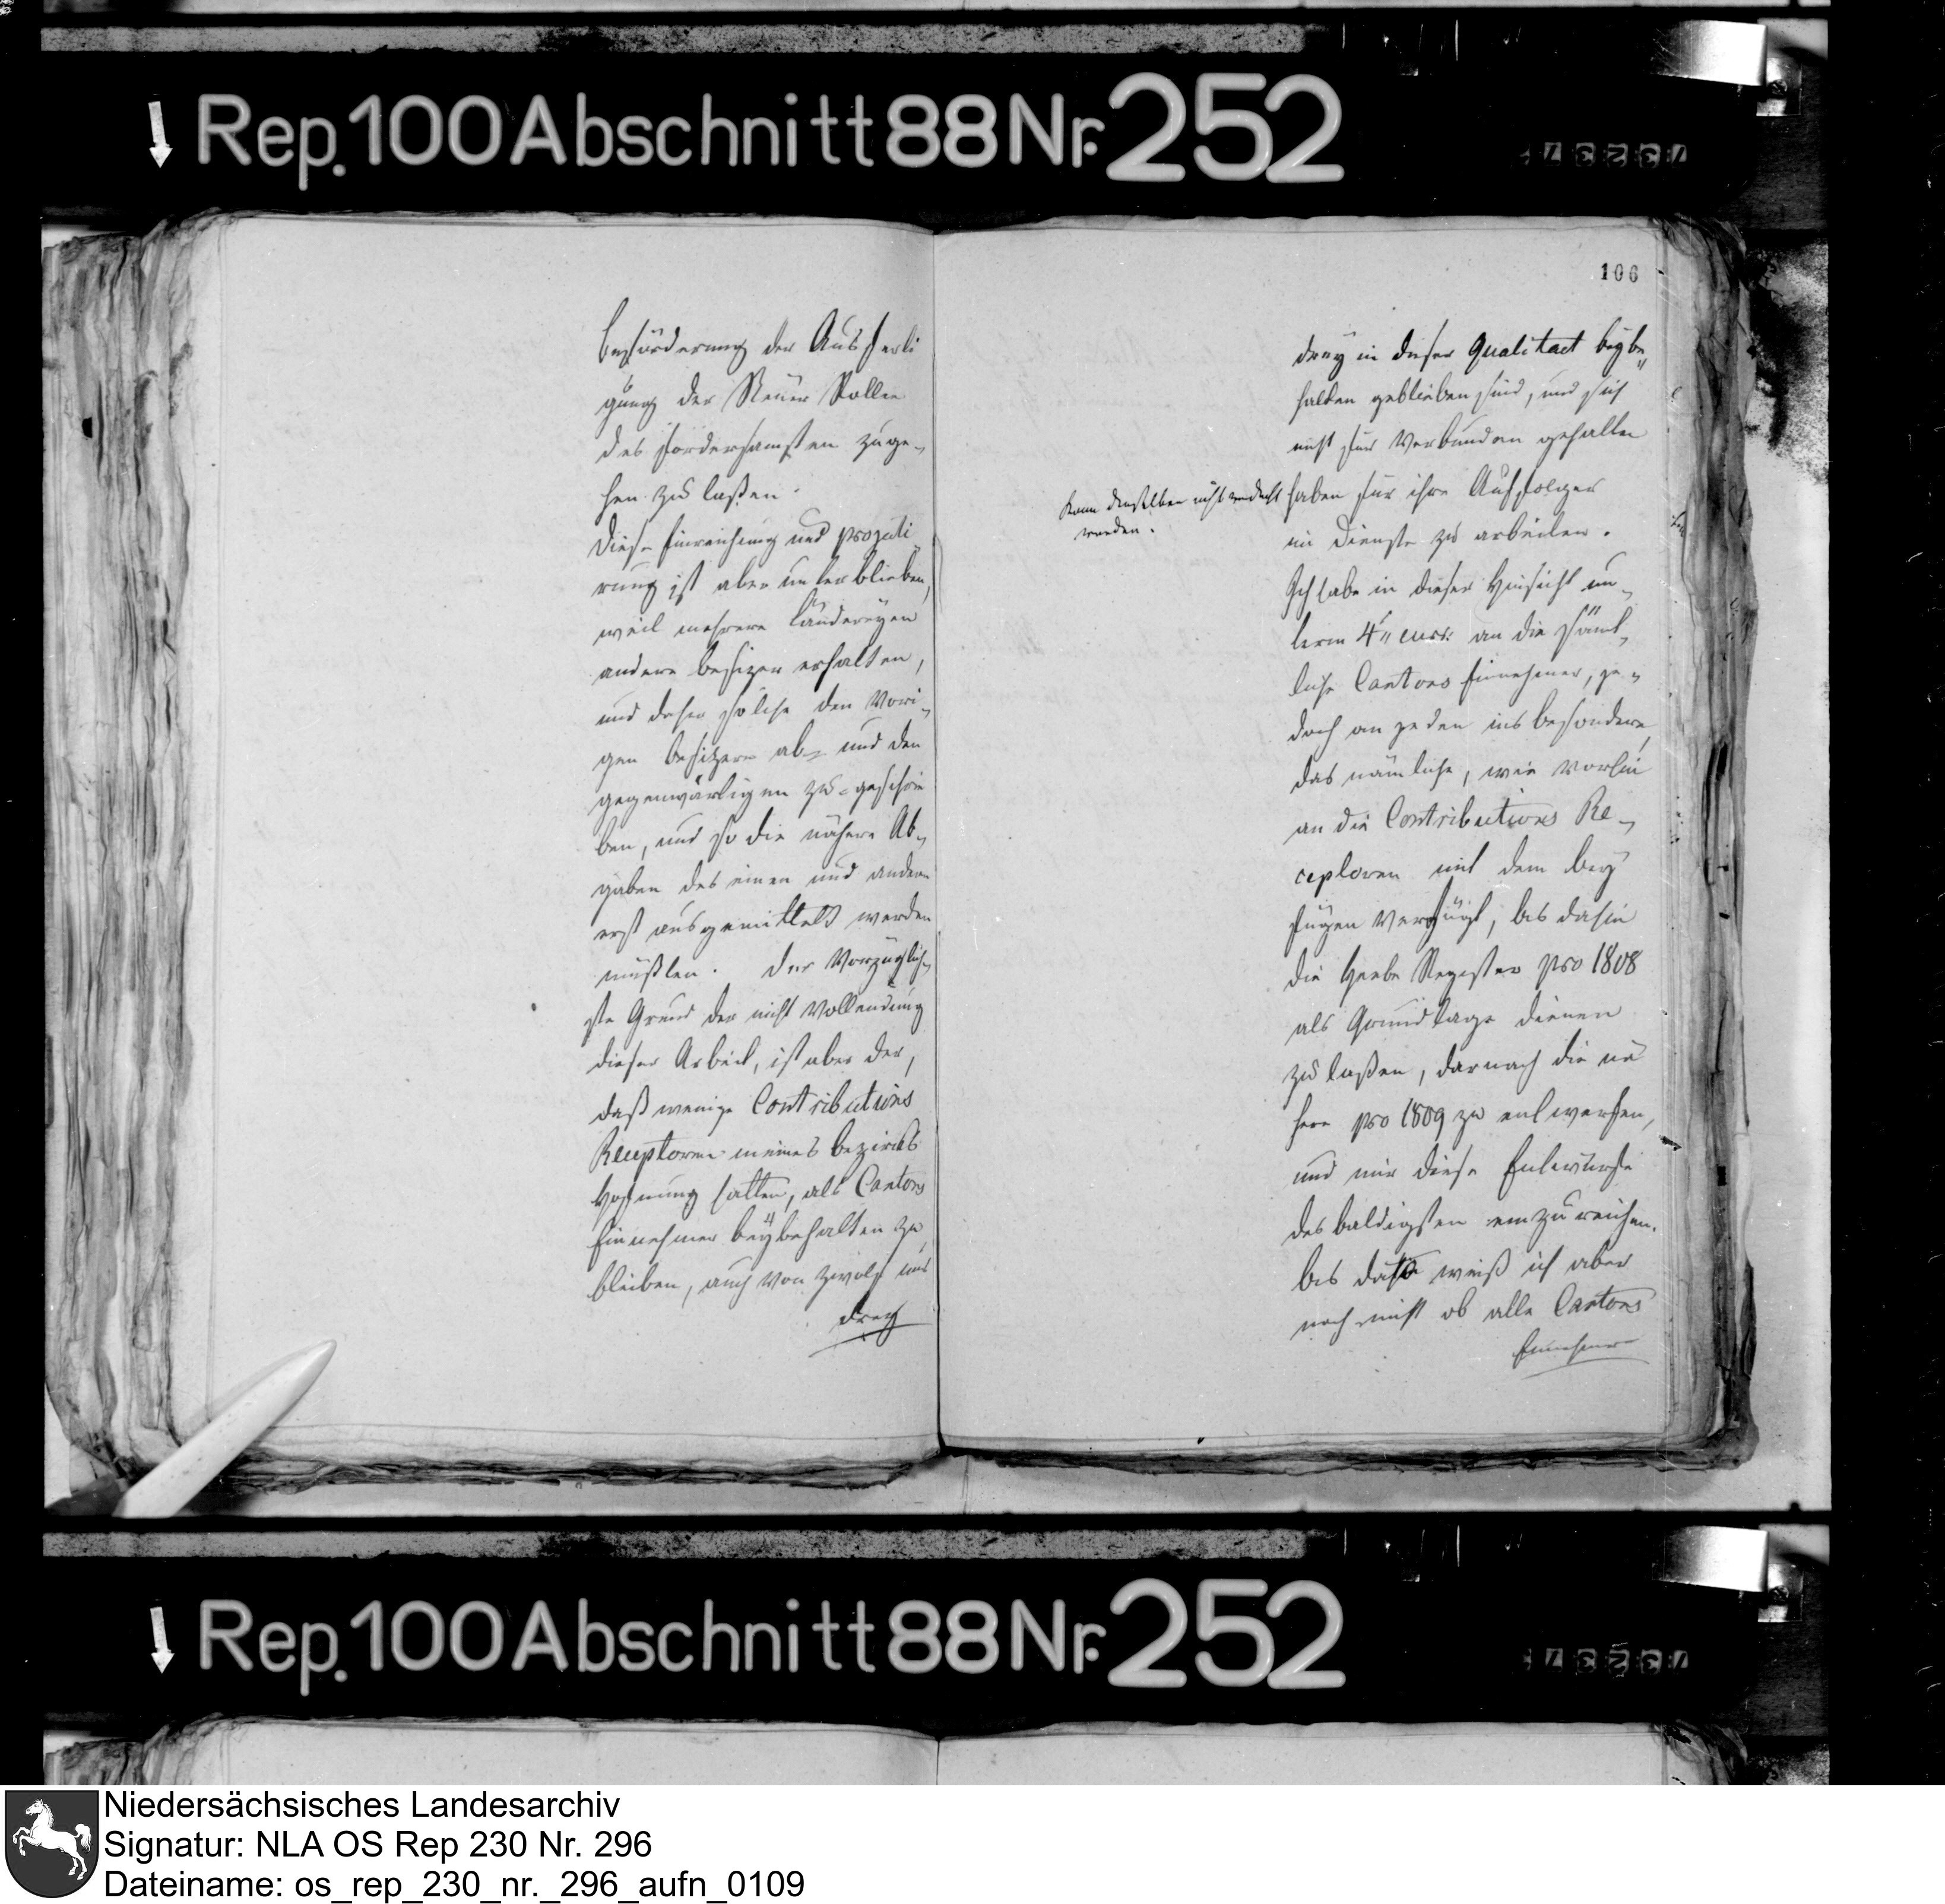 Rep. 100 Abschnitt 88 Nr. 252
Beförderung der Ausferti
gung der Steuer Rollen
des fördersamsten zuge-
hen zu laßen.
Diese Einreichung und
rung ist aber unterblieben,
weil mehrere Ländereyen
andere Besizer erhalten,
und daher solche den Vori-
gen Besitzern ab- und den
gegenwärtigen zu-geschrie
ben, und so die nähere Ab-
gaben des einen und andern
erst ausgemittelt werden
müßten. Der Vorzüglich-
ste Grund der nicht Vollendung
dieser Arbeit, ist aber der,
daß wenige Contributions
Receptoren meines Bezircks
Hofnung hatten, als Cantons
Einnehmer beybehalten zu
bleiben, auch von zwölf nur
drey
106
drey in dieser Qualitaet beybe
halten geblieben sind, und sich
nicht für Verbunden gehalten
haben für ihre Auffolger
im Dienste zu arbeiten.
kann denselben nicht verdacht
werden.
Ich habe in dieser Hinsicht un-
term 4n curr: an die sämt-
liche Cantons Einnehmer, je-
doch an jeden ins besondere,
das nämliche, wie vorhin
an die Contributions Re-
ceptoren mit dem bey
fügen verfügt, bis dahin
die Hebe Register pro 1808
als Grundlage dienen
zu laßen, darnach die nä
here pro 1809 zu entwerfen,
und mir diese Entwürfe
des baldigsten einzureichen.
bis dato weiß ich aber
noch nicht ob alle Cantons
Einnehmer
Rep. 100 Abschnitt 88 Nr. 252
Niedersächsisches Landesarchiv
Signatur: NLA OS Rep 230 Nr. 296
Dateiname: os_rep_230_nr._296_aufn_0109